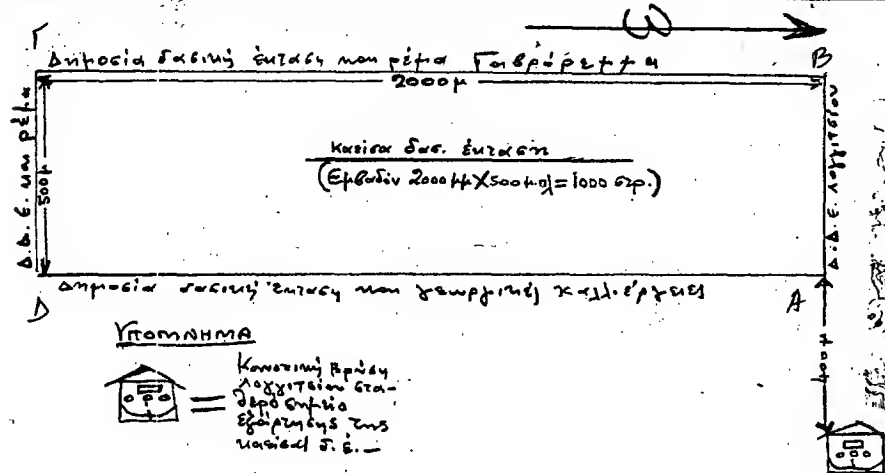 Γ
Δημοσία δασική έκταση και ρέμα Γαβρόρεμμα
Β
2000μ
Δ.Δ.Ε. και ρέμα
500μ
Καείσα δασ. έκταση
(Εμβαδόν 2000μμ X 500μπλ = 1000 στρ.)
Δ.Δ.Ε. Λογγιτσίου
D
Δημοσία δασική έκταση και γεωργικές καλλιέργειες
A
400μ
ΥΠΟΜΝΗΜΑ
Κοινοτική βρύση
Λογγιτσίου στα-
θερό σημείο
εξάρτησης της
καείσας δ.έ.—